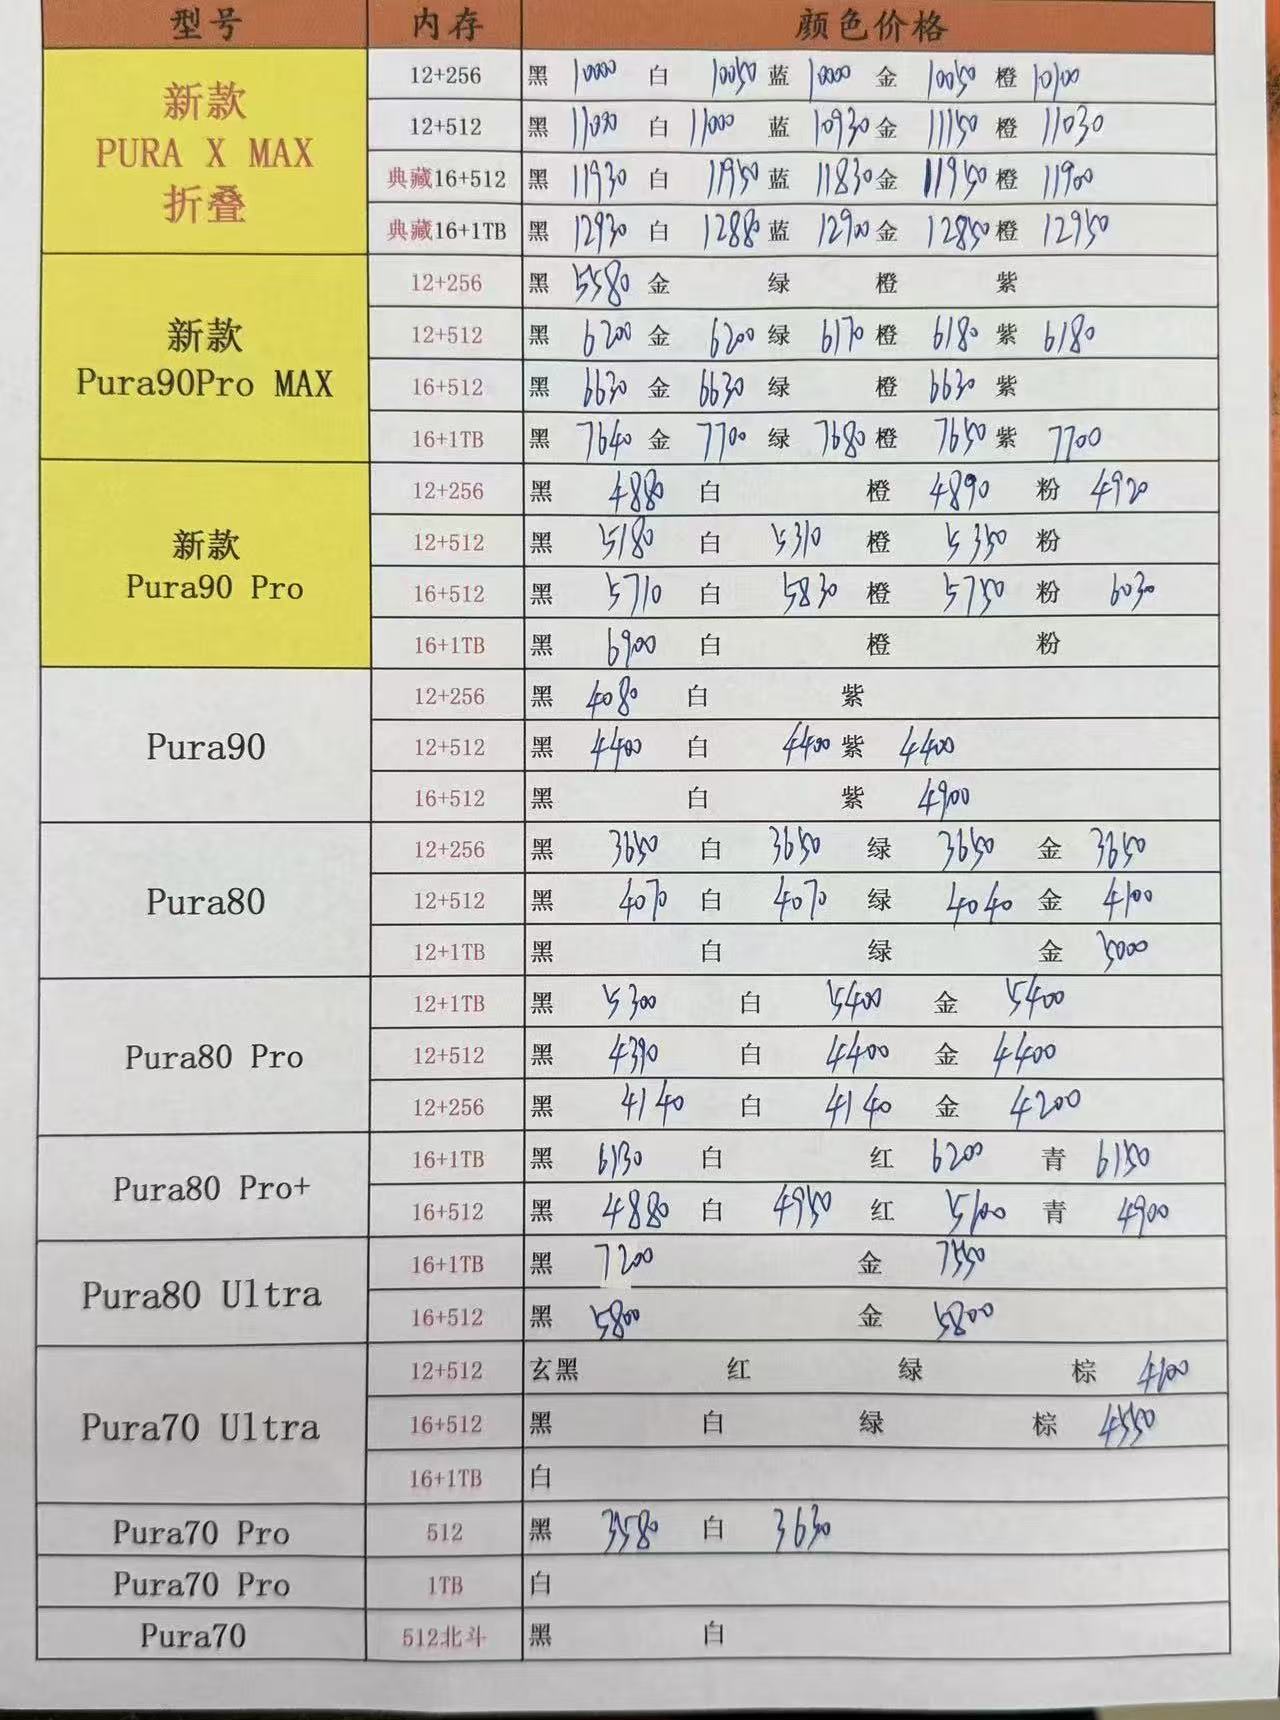 型号 内存 颜色价格
新款
PURA X MAX
折叠
12+256 黑 10000 白 10050 蓝 10000 金 10050 橙 10100
12+512 黑 11000 白 11000 蓝 10930 金 11150 橙 11030
典藏16+512 黑 11930 白 11950 蓝 11830 金 11950 橙 11900
典藏16+1TB 黑 12930 白 12880 蓝 12900 金 12850 橙 12950
新款
Pura90Pro MAX
12+256 黑 5580 金 绿 橙 紫
12+512 黑 6200 金 6200 绿 6170 橙 6180 紫 6180
16+512 黑 6630 金 6630 绿 橙 6630 紫
16+1TB 黑 7640 金 7700 绿 7680 橙 7650 紫 7700
新款
Pura90 Pro
12+256 黑 4880 白 橙 4890 粉 4920
12+512 黑 5180 白 5310 橙 5350 粉
16+512 黑 5710 白 5830 橙 5750 粉 6030
16+1TB 黑 6900 白 橙 粉
Pura90
12+256 黑 4080 白 紫
12+512 黑 4400 白 4400 紫 4400
16+512 黑 白 紫 4900
Pura80
12+256 黑 3650 白 3650 绿 3650 金 3650
12+512 黑 4070 白 4070 绿 4040 金 4100
12+1TB 黑 白 绿 金 5000
Pura80 Pro
12+1TB 黑 5300 白 5400 金 5400
12+512 黑 4390 白 4400 金 4400
12+256 黑 4140 白 4140 金 4200
Pura80 Pro+
16+1TB 黑 6130 白 红 6200 青 6150
16+512 黑 4880 白 4950 红 5100 青 4900
Pura80 Ultra
16+1TB 黑 7200 金 7550
16+512 黑 5800 金 5800
Pura70 Ultra
12+512 玄黑 红 绿 棕 4100
16+512 黑 白 绿 棕 4550
16+1TB 白
Pura70 Pro 512 黑 3580 白 3630
Pura70 Pro 1TB 白
Pura70 512北斗 黑 白